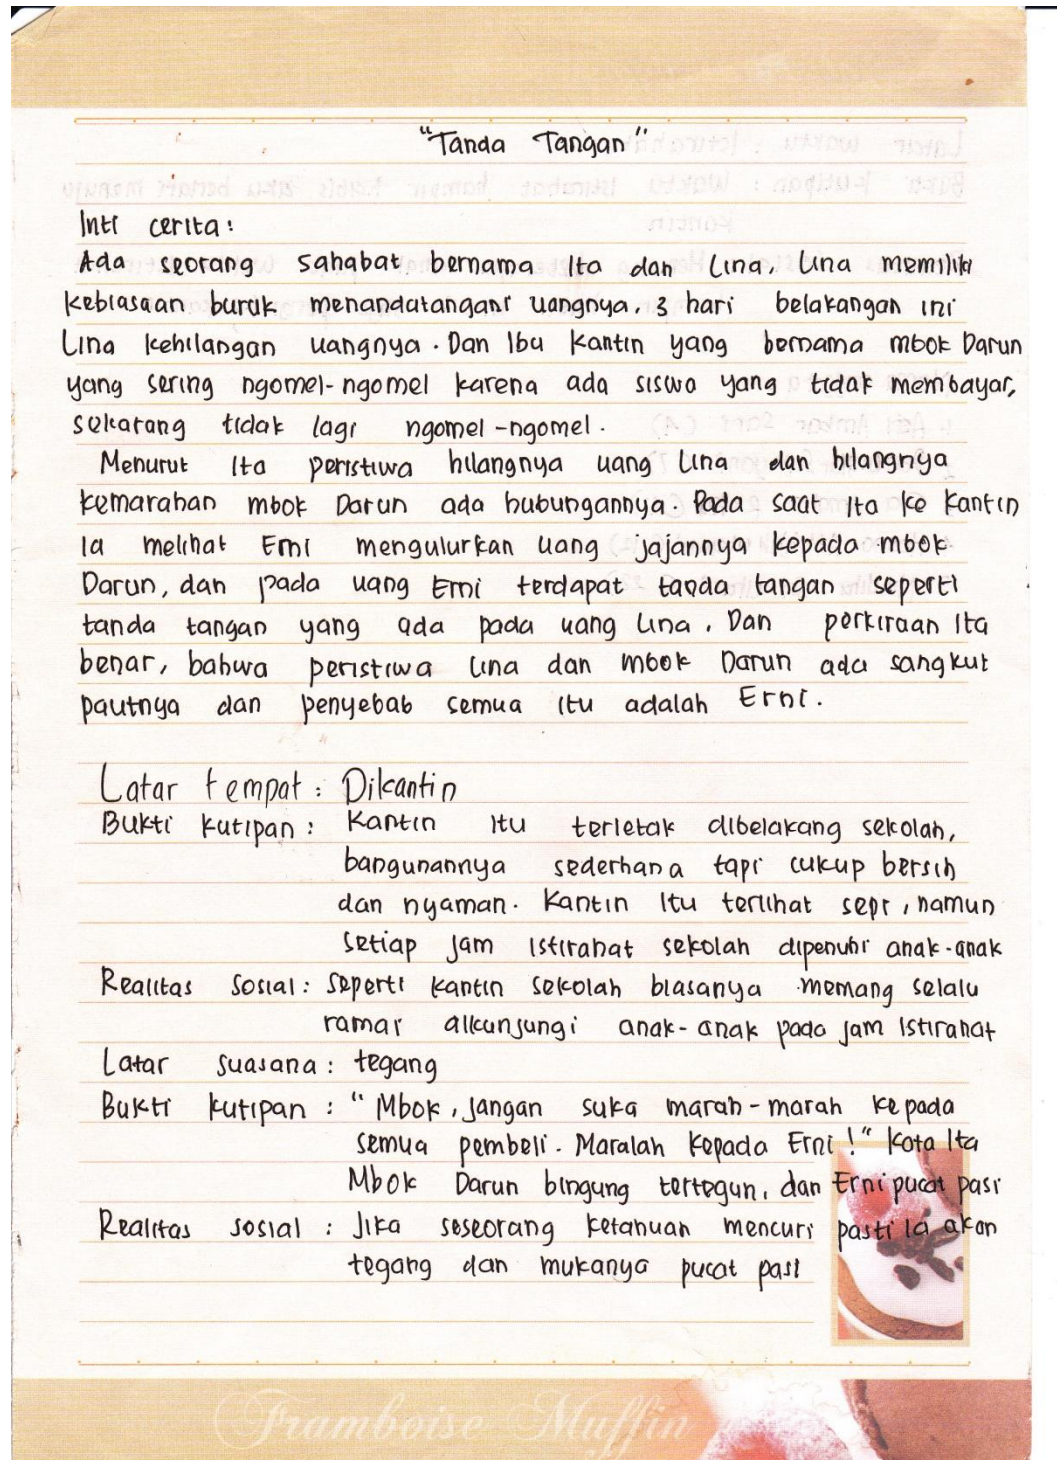 "Tanda Tangan"
Inti cerita:
Ada seorang sahabat bernama Ita dan Lina, Lina memiliki
kebiasaan buruk menandatangani uangnya. 3 hari belakangan ini
Lina kehilangan uangnya. Dan Ibu kantin yang bernama mbok Darun
yang sering ngomel-ngomel karena ada siswa yang tidak membayar,
sekarang tidak lagi ngomel-ngomel.
Menurut Ita peristiwa hilangnya uang Lina dan hilangnya
kemarahan mbok Darun ada hubungannya. Pada saat Ita ke kantin
ia melihat Erni mengulurkan uang jajannya kepada mbok
Darun, dan pada uang Erni terdapat tanda tangan seperti
tanda tangan yang ada pada uang Lina. Dan perkiraan Ita
benar, bahwa peristiwa Lina dan mbok Darun ada sangkut
pautnya dan penyebab semua itu adalah Erni.
Latar tempat : Dikantin
Bukti kutipan : Kantin itu terletak dibelakang sekolah,
bangunannya sederhana tapi cukup bersih
dan nyaman. Kantin itu terlihat sepi, namun
setiap jam istirahat sekolah dipenuhi anak-anak
Realitas sosial : Seperti kantin sekolah biasanya memang selalu
ramai dikunjungi anak-anak pada jam istirahat
Latar suasana : tegang
Bukti kutipan : "Mbok, jangan suka marah-marah kepada
semua pembeli. Maralah kepada Erni!" kata Ita
Mbok Darun bingung tertegun, dan Erni pucat pasi
Realitas sosial : Jika seseorang ketahuan mencuri pasti ia akan
tegang dan mukanya pucat pasi
Framboise Muffin